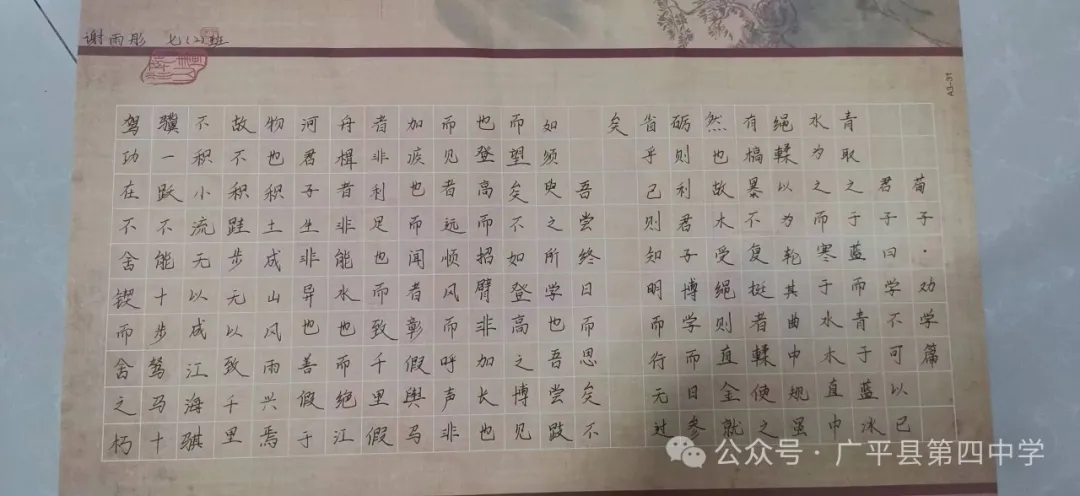 谢雨彤 七(2)班
荀子·劝学篇
君子曰学不可以已
青取之于蓝而青于蓝冰
水为之而寒于水木直中
绳輮以为轮其曲中规虽
有槁暴不复挺者輮使之
然也故木受绳则直金就
砺则利君子博学而日参
省乎己则知明而行无过
矣
吾尝终日而思矣不
如须臾之所学也吾尝跂
而望矣不如登高之博见
也登高而招臂非加长也
而见者远顺风而呼声非
加疾也而闻者彰假舆马
者非利足也而致千里假
舟楫者非能水也而绝江
河君子生非异也善假于
物也积土成山风雨兴焉
故不积跬步无以致千里
不积小流无以成江海骐
骥一跃不能十步驽马十
驾功在不舍锲而舍之朽
公众号·广平县第四中学